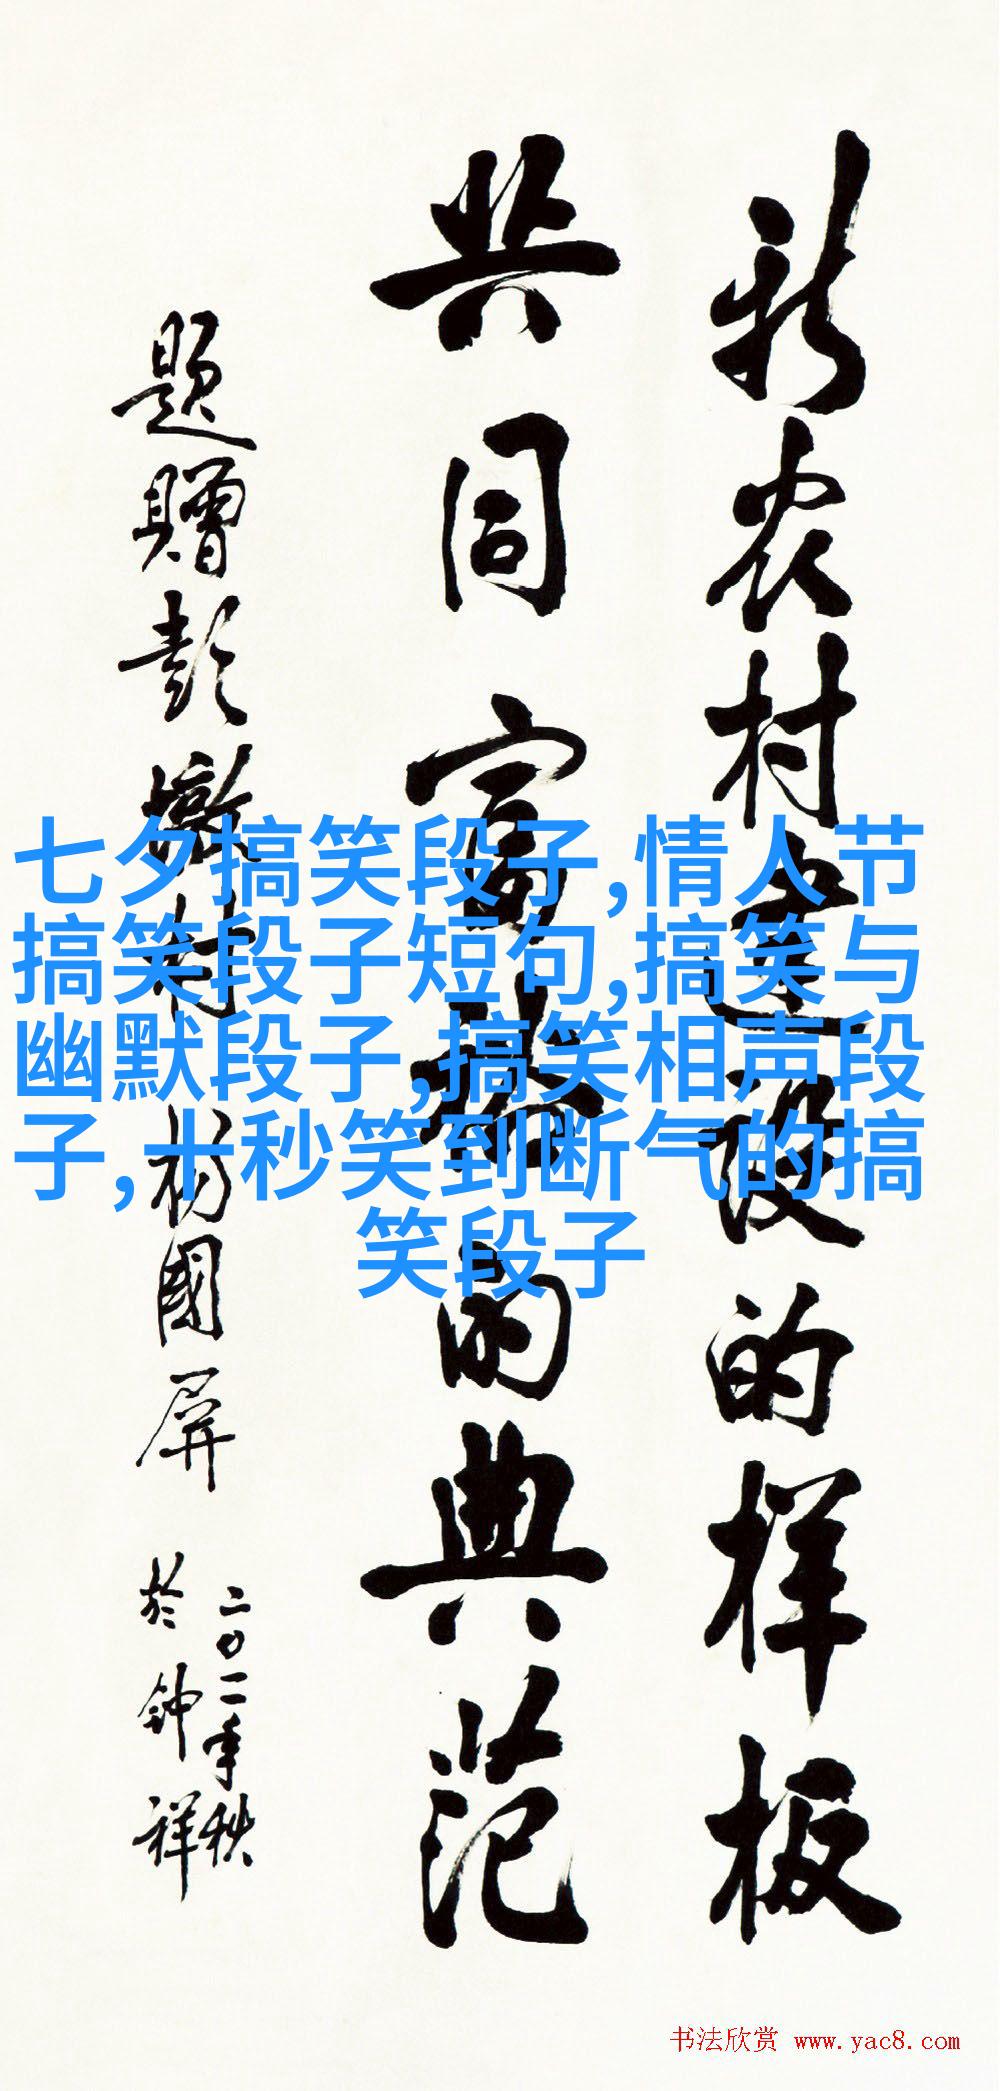 新农村建设的样板
共同富裕的典范
题赠彭墩村 杨国屏
二〇一一年秋
於钟祥
七夕搞笑段子,情人节
搞笑段子短句,搞笑与
幽默段子,搞笑相声段
子,十秒笑到断气的搞
笑段子
书法欣赏 www.yac8.com